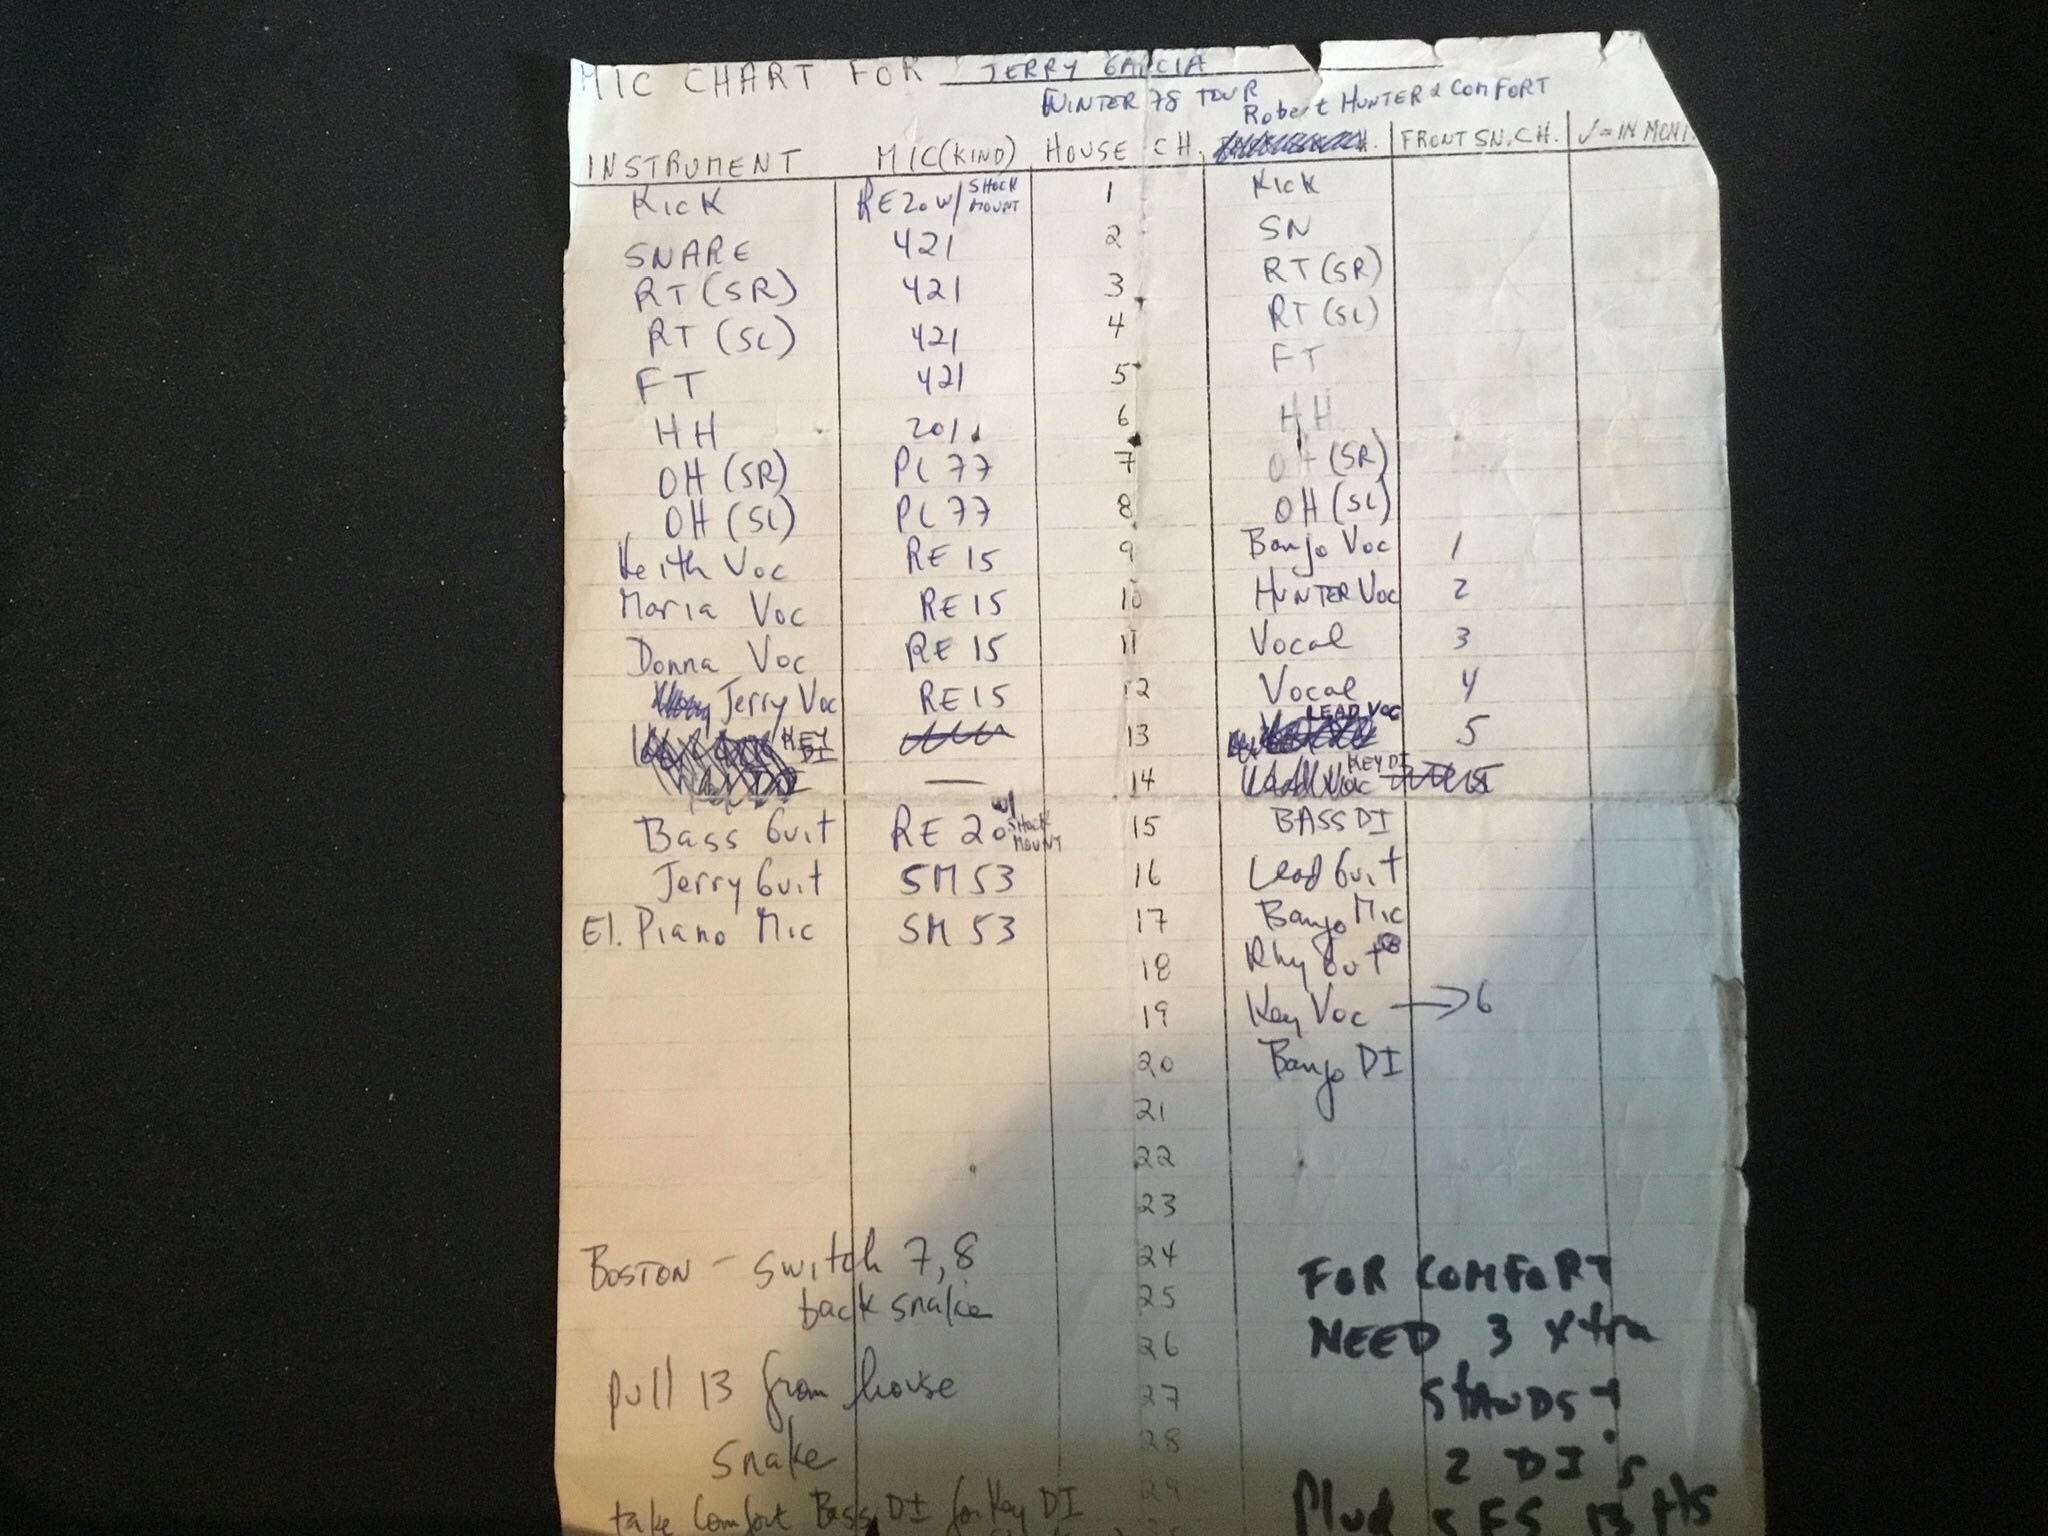 MIC CHART FOR JERRY GARCIA
WINTER 78 TOUR Robert HUNTER & COMFORT
INSTRUMENT MIC (KIND) HOUSE CH. FRONT SN. CH. √ = IN MONI.
KICK RE20 W/ SHOCK MOUNT 1 KICK
SNARE 421 2 SN
RT (SR) 421 3 RT (SR)
RT (SL) 421 4 RT (SL)
FT 421 5 FT
HH 201 6 HH
OH (SR) PL 77 7 OH (SR)
OH (SL) PL 77 8 OH (SL)
Keith Voc RE 15 9 Banjo Voc 1
Maria Voc RE 15 10 HUNTER Voc 2
Donna Voc RE 15 11 Vocal 3
Jerry Voc RE 15 12 Vocal 4
KEY DI 13 LEAD VOC 5
— 14 KEY DI
Bass Guit RE 20 w/ SHOCK MOUNT 15 BASS DI
Jerry Guit SM 53 16 Lead Guit
El. Piano Mic SM 53 17 Banjo Mic
18 Rhy Guit
19 Key Voc → 6
20 Banjo DI
21
22
23
BOSTON - switch 7, 8 24 FOR COMFORT
back snake 25
26 NEED 3 Xtra
pull 13 from house 27 STANDS +
snake 28 2 DI's
take Comfort Bass DI for Key DI 29